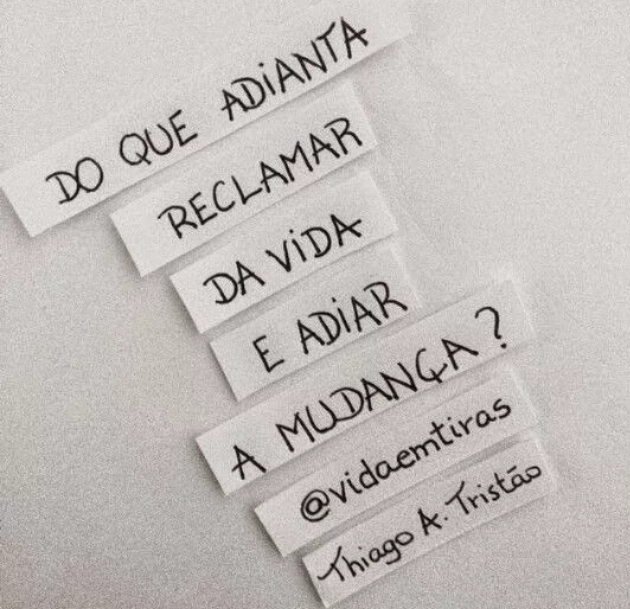 DO QUE ADIANTA
RECLAMAR
DA VIDA
E ADIAR
A MUDANÇA?
@vidaemtiras
Thiago A. Tristão